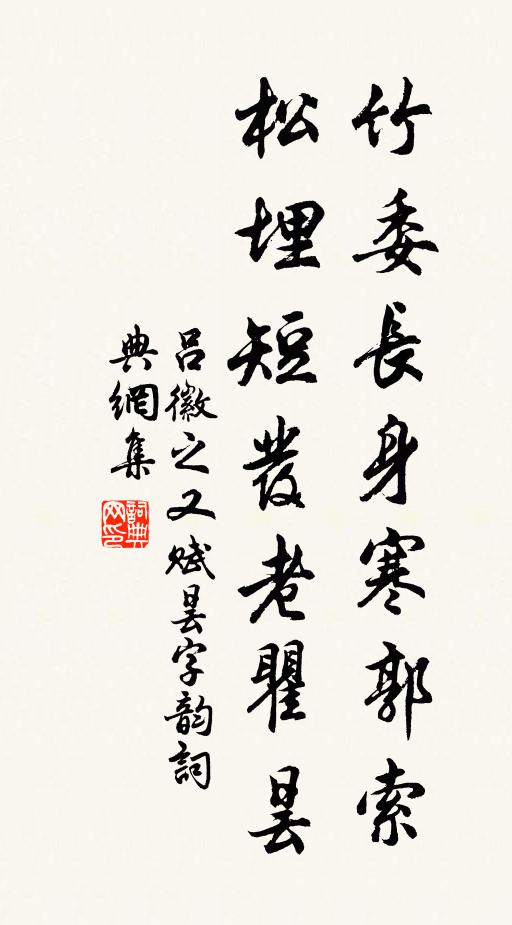 竹委長身寒郭索
松埋短發老瞿曇
呂徽之又賦曇字韵詞
典網集
詞典網印